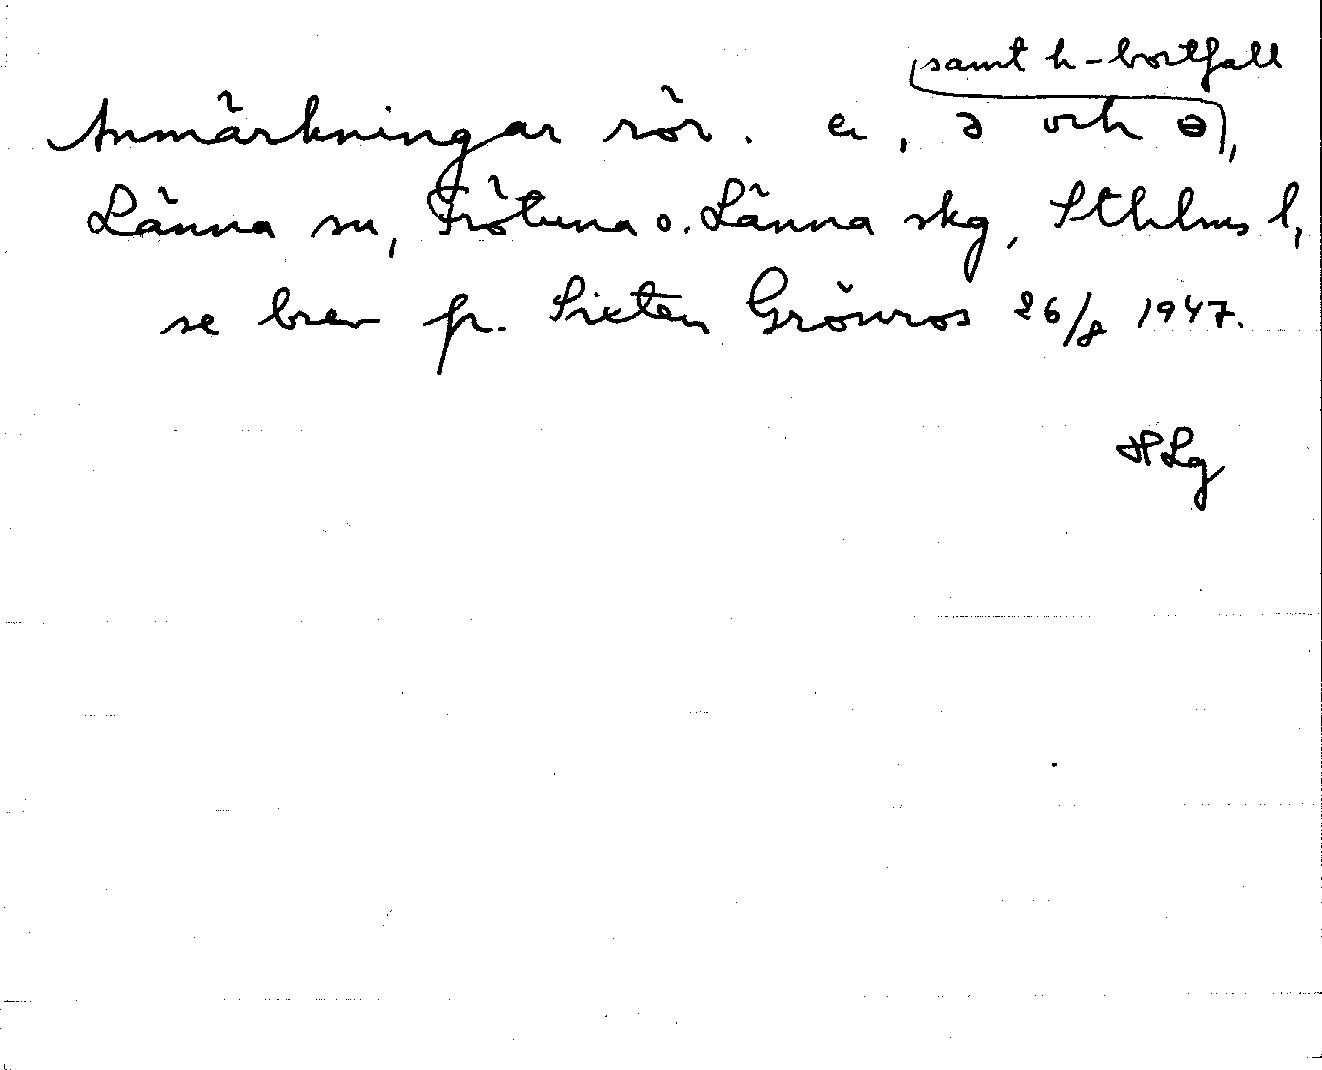 samt h-bortfall
Anmärkningar rör. a, ə och ɵ,
Länna sn, Frötuna o. Länna skg, Sthlms l,
se brev fr. Sixten Grönros 26/8 1947.
HLg